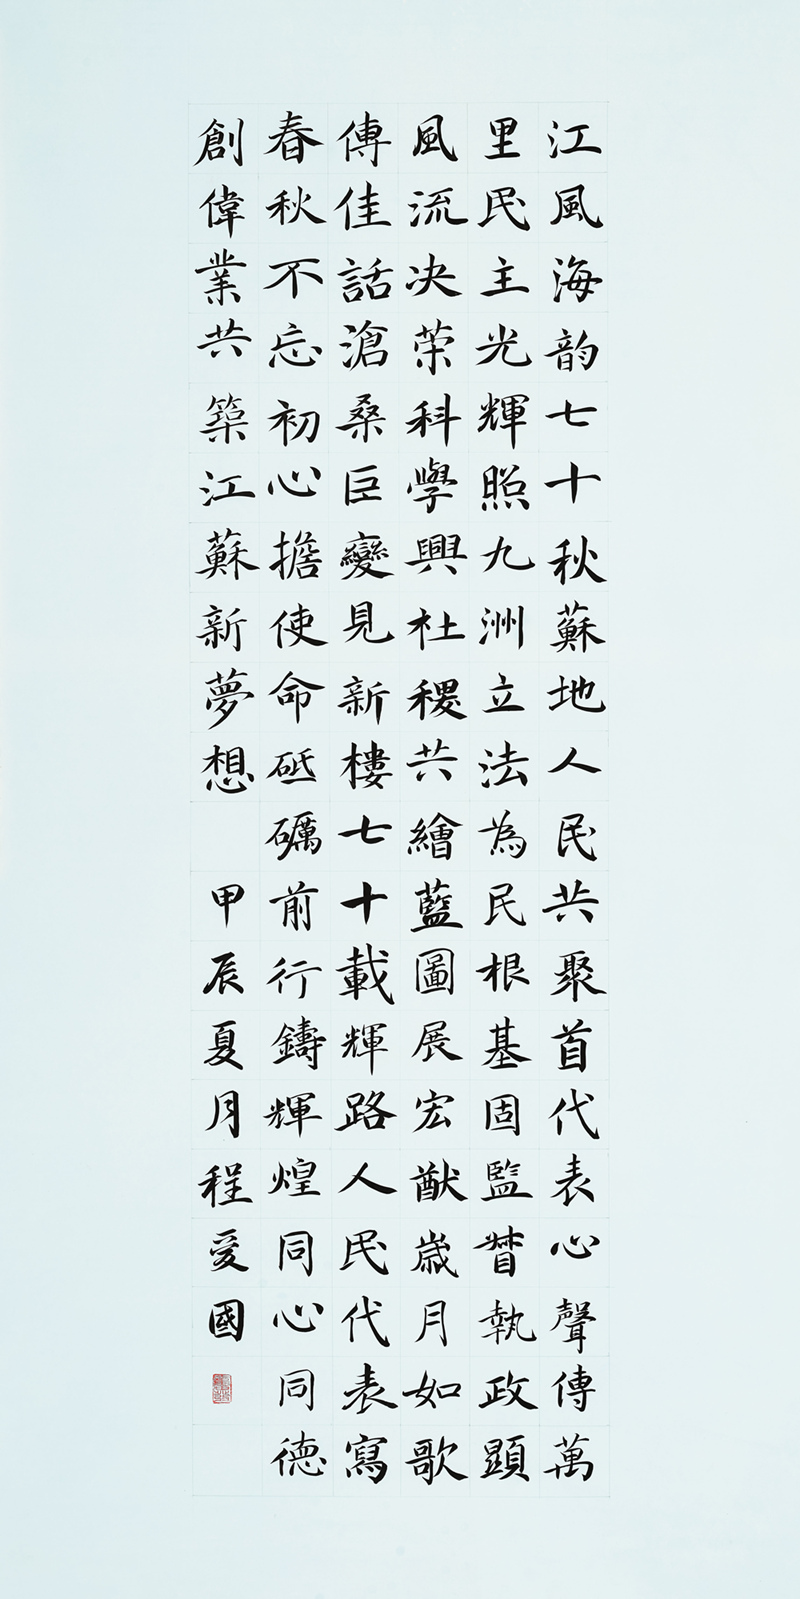 江風海韵七十秋蘇地人民共聚首代表心聲傳萬
里民主光輝照九洲立法為民根基固監督執政顯
風流决荣科學興社稷共繪藍圖展宏猷歲月如歌
傳佳話滄桑巨變見新樓七十載輝路人民代表寫
春秋不忘初心擔使命砥礪前行鑄輝煌同心同德
創偉業共築江蘇新夢想 甲辰夏月程爱國